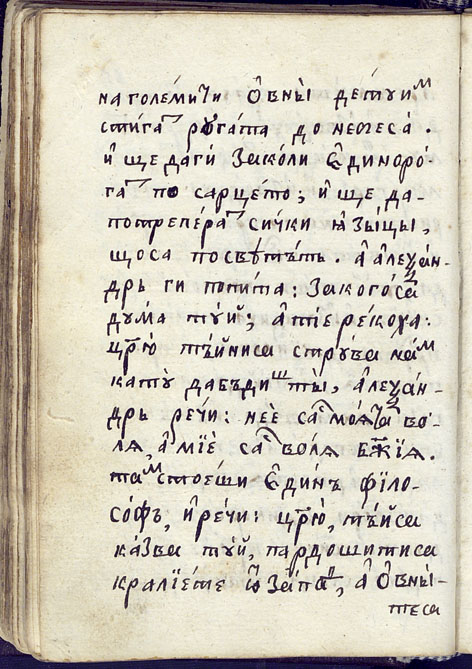 на големичи ѻ҆вны̀ детꙋим
стига рѹгата до небеса .
и҆ ще даги заколи є҆диноро́
га по сарце́то ; и҆ ще да-
потрепера сички ꙗ҆зы́цы ,
щоса посвѣтѣтъ . а҆ а҆леѯа́н-
дрь ги попита : за кого̀са
дꙋма тꙋй ; а҆ тіе рекоха :
цр҃ю тъ́йниса стрꙋва нам
като̀ дабъдиш ты̀ , а҆леѯа́н-
дрь речѝ : нее са моѧта во́-
лѧ , а҆мѝ е са волѧ бж҃їѧ .
там стоеши є҆ди́нъ фїло-
со́фъ , и҆ речѝ : цр҃ю , тъ́йса
ка́зва тꙋй , па рдошитиса
кралїе́те ѿ за́пад , а҆ ѻ҆вны̀-
теса